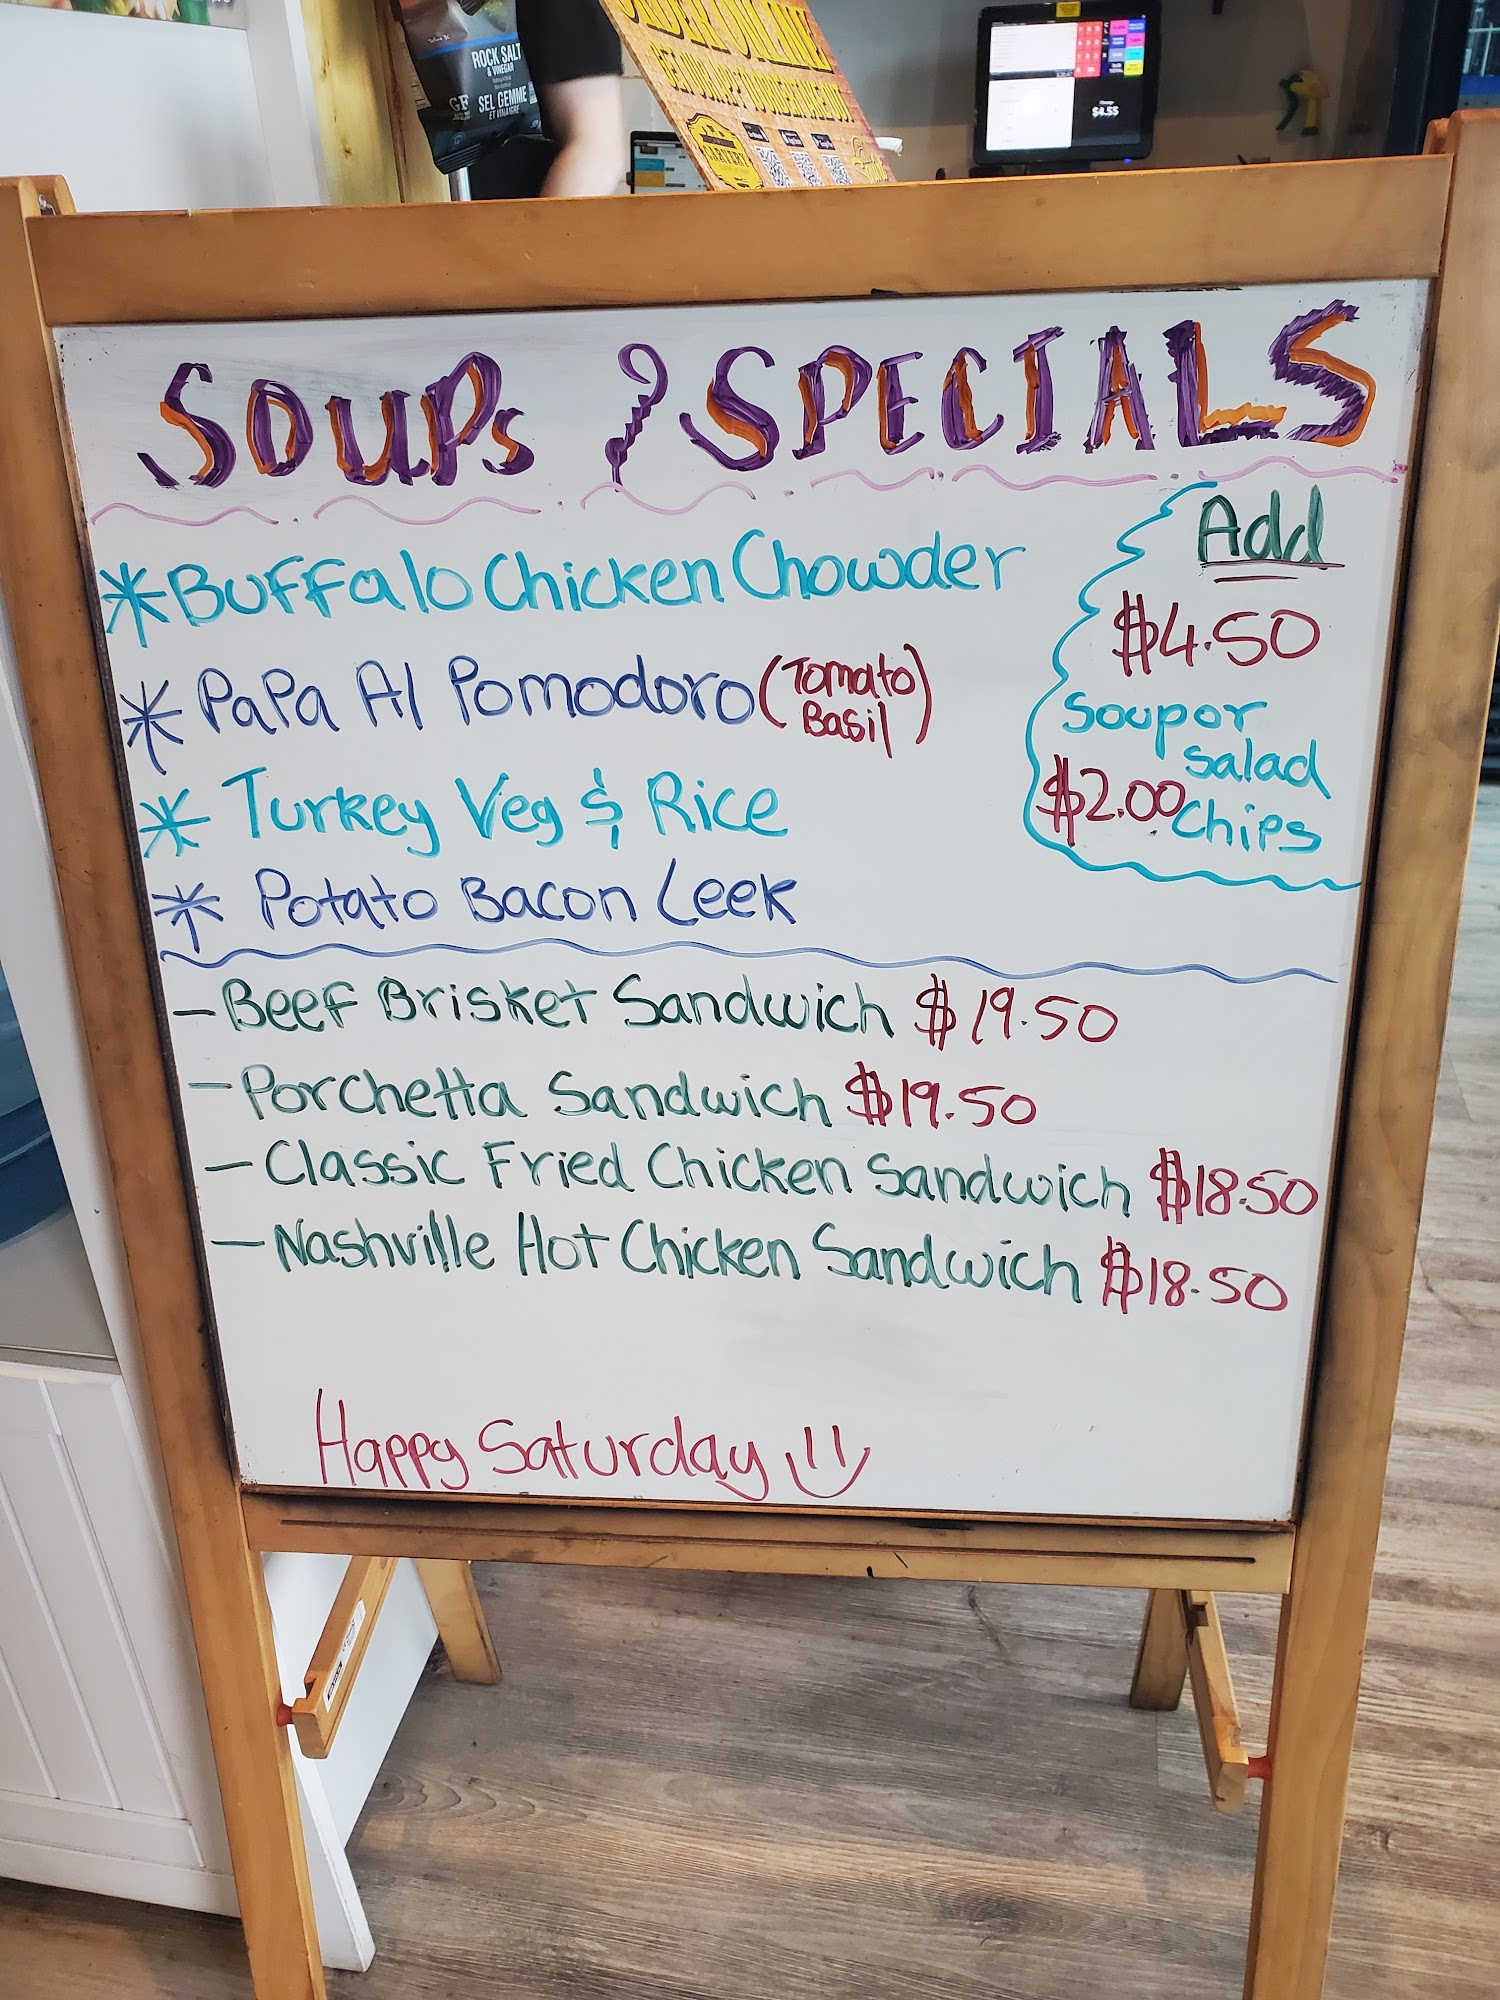 ROCK SALT
& VINEGAR
GF
SEL GEMME
ET VINAIGRE
ORDER ONLINE
$4.55
SOUPs & SPECIALS
*Buffalo Chicken Chowder
* PaPa Al Pomodoro (Tomato Basil)
* Turkey Veg & Rice
* Potato Bacon Leek
Add
$4.50
Soup or
Salad
$2.00 Chips
- Beef Brisket Sandwich $19.50
- Porchetta Sandwich $19.50
- Classic Fried Chicken Sandwich $18.50
- Nashville Hot Chicken Sandwich $18.50
Happy Saturday